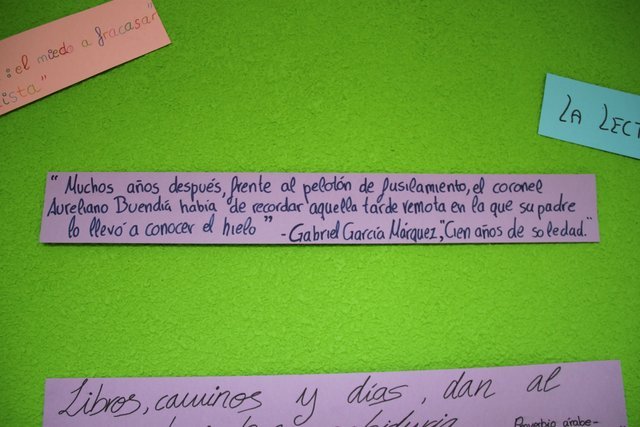 : el miedo a fracasar"
ista"
LA LECT
" Muchos años después, frente al pelotón de fusilamiento, el coronel
Aureliano Buendía había de recordar aquella tarde remota en la que su padre
lo llevó a conocer el hielo" - Gabriel García Márquez, "Cien años de soledad."
Libros, caminos y días, dan al
Proverbio árabe-